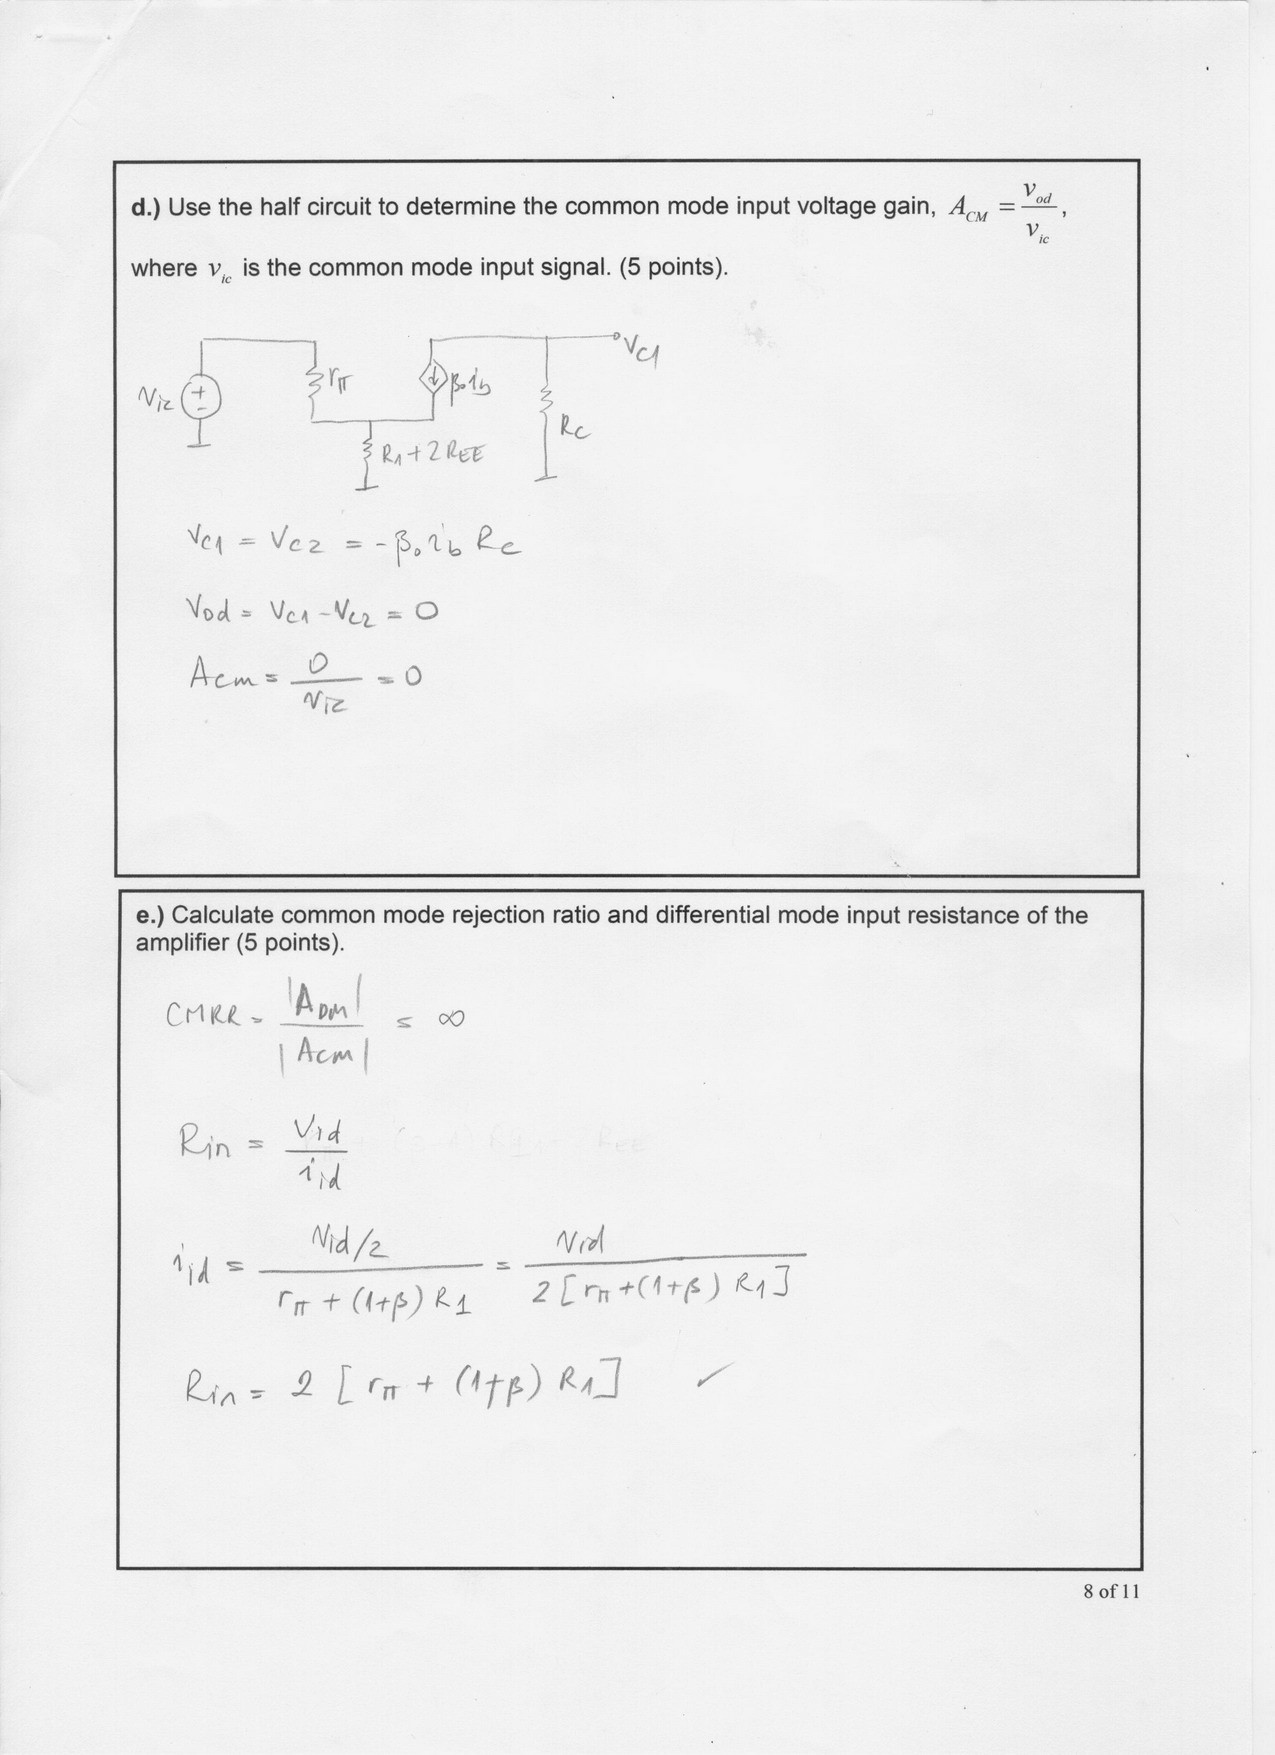 d.) Use the half circuit to determine the common mode input voltage gain, A_CM = v_od / v_ic ,
where v_ic is the common mode input signal. (5 points).
v_ic + - rπ β₀i_b V_C1
R_C
R1+2R_EE
V_C1 = V_C2 = -β₀i_b R_C
V_od = V_C1 - V_C2 = 0
A_cm = 0 / v_ic = 0
e.) Calculate common mode rejection ratio and differential mode input resistance of the
amplifier (5 points).
CMRR = |A_DM| / |A_cm| = ∞
R_in = V_id / i_id
i_id = (v_id/2) / (rπ + (1+β) R1) = v_id / (2 [rπ + (1+β) R1])
R_in = 2 [rπ + (1+β) R1] ✓
8 of 11